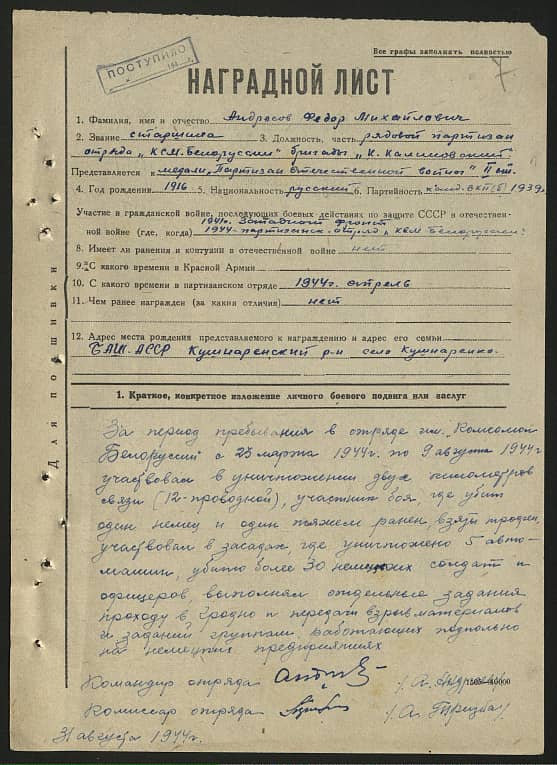 Все графы заполнять полностью
ПОСТУПИЛО
7
НАГРАДНОЙ ЛИСТ
1. Фамилия, имя и отчество Андросов Федор Михайлович
2. Звание старшина 3. Должность, часть рядовой партизан
отряда „КСМ. Белоруссии" бригады „К. Калиновский"
Представляется к медали „Партизан отечественной войны" II ст.
4. Год рождения 1916 5. Национальность русский 6. Партийность канд. ВКП(б) 1939г.
Участие в гражданской войне, последующих боевых действиях по защите СССР в отечествен-
1941г. Западный фронт
ной войне (где, когда) 1944г. партизанск. отряд „КСМ Белоруссии"
8. Имеет ли ранения и контузии в отечественной войне нет
9. С какого времени в Красной Армии
10. С какого времени в партизанском отряде 1944г. апрель
11. Чем ранее награжден (за какия отличия) нет
12. Адрес места рождения представляемого к награждению и адрес его семьи
БАШ. АССР Кушнаренский р-н село Кушнаренко.
Для подшивки
1. Краткое, конкретное изложение личного боевого подвига или заслуг
За период пребывания в отряде им. Комсомол
Белоруссии с 25 марта 1944г. по 9 августа 1944г
участвовал в уничтожении двух километров
связи (12-проводной), участник боя где убит
один немец и один тяжем ранен, взяты трофеи,
участвовал в засадах, где уничтожено 5 авто-
машин, убито более 30 немецких солдат и
офицеров, выполнял отдельные задания
проходу в Гродно и передачи взрывматериалов
и заданий группам, работающих подпольно
на немецких предприятиях
Командир отряда
Комиссар отряда /А. Тризба/
31 августа 1944г.